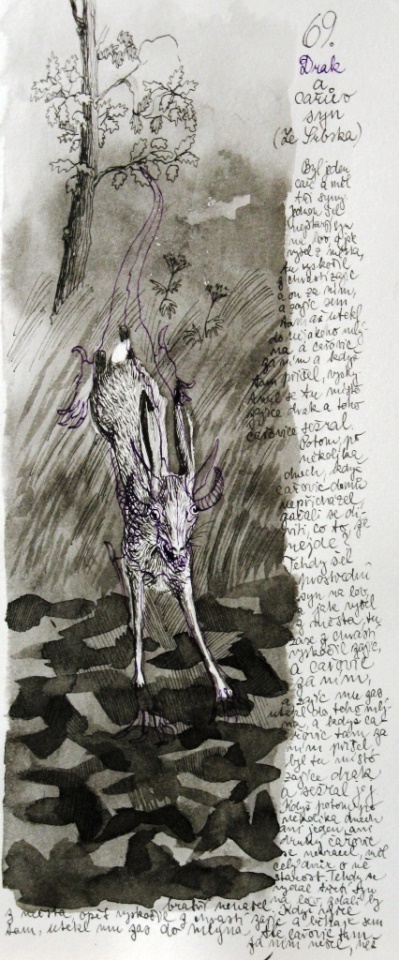 69.
Drak
a
carův
syn
(Ze Srbska)
Byl jeden
car a měl
tři syny.
Jednou šel
nejstarší syn
na lov, a jak
vyšel z města,
tu vyskočil
z chrastí zajíc
a on za ním,
a zajíc sem
tam až utekl
do nějakého mlý-
na a carovic
za ním a když
tam přišel,
byl se tu místo
zajíce drak a toho
caroviče sežral.
Potom, po
několika
dnech, když
carovic domů
nepřicházel,
začali se di-
viti, co to, že
nejde?
Tehdy šel
prostřední
syn na lov
a jak vyšel
z města, tu
zase z chrastí
vyskočil zajíc,
a carovic
za ním,
a zajíc mu zas
utekl do toho mlý-
na, a když ca-
rovic tam za
ním přišel,
byl tu místo
zajíce drak
a sežral jej.
Když potom po
několika dnech
ani jeden, ani
druhý carovic
se nevracel, měl
celý dvůr o ně
starost. Tehdy se
vydal třetí syn
na lov, zdali by
bratrů nenašel. Když vyšel
z města, opět vyskočil z chrastí zajíc a běhaje sem
tam, utekl mu zas do mlýna. Ale carovic tam
za ním nešel, než